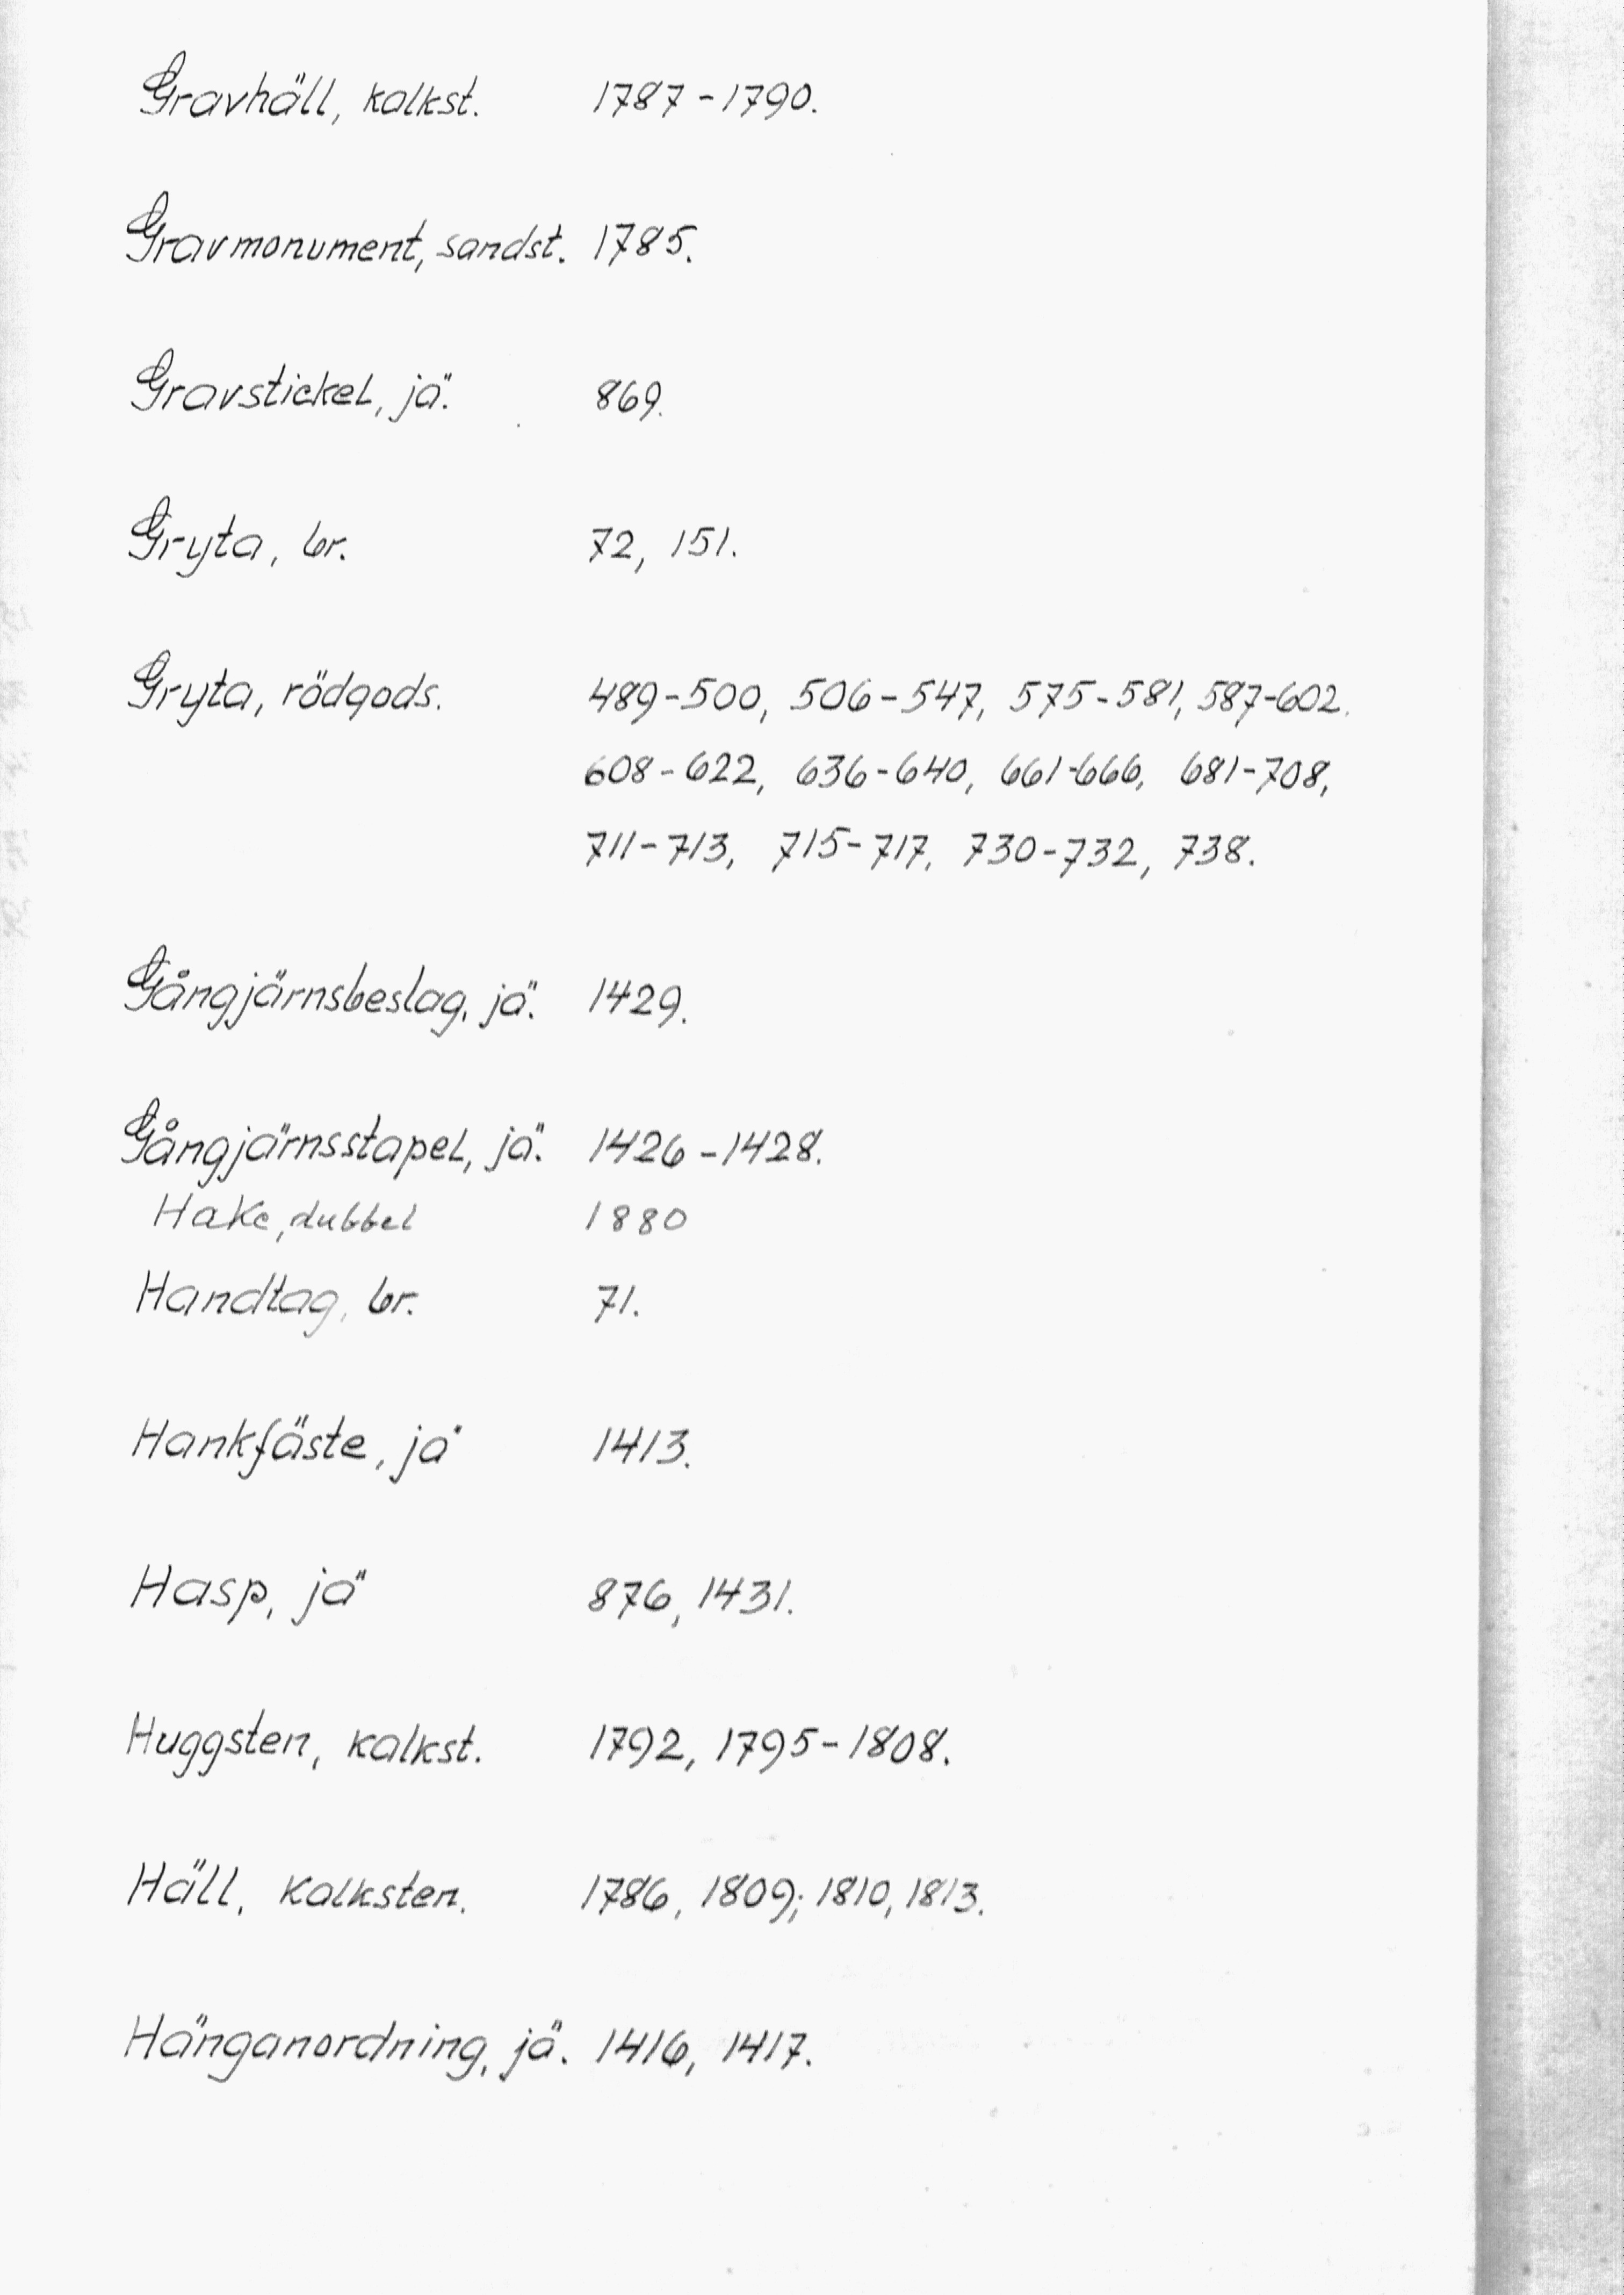 Gravhäll, kalkst. 1787-1790.
Gravmonument, sandst. 1785.
Gravstickel, jä. 869.
Gryta, br. 72, 151.
Gryta, rödgods. 489-500, 506-547, 575-581, 587-602.
608-622, 636-640, 661-666, 681-708,
711-713, 715-717, 730-732, 738.
Gångjärnsbeslag, jä. 1429.
Gångjärnsstapel, jä. 1426-1428.
Hake, dubbel 1880
Handtag, br. 71.
Hankfäste, jä 1413.
Hasp, jä 876, 1431.
Huggsten, kalkst. 1792, 1795-1808.
Häll, kalksten. 1786, 1809; 1810, 1813.
Hänganordning, jä. 1416, 1417.